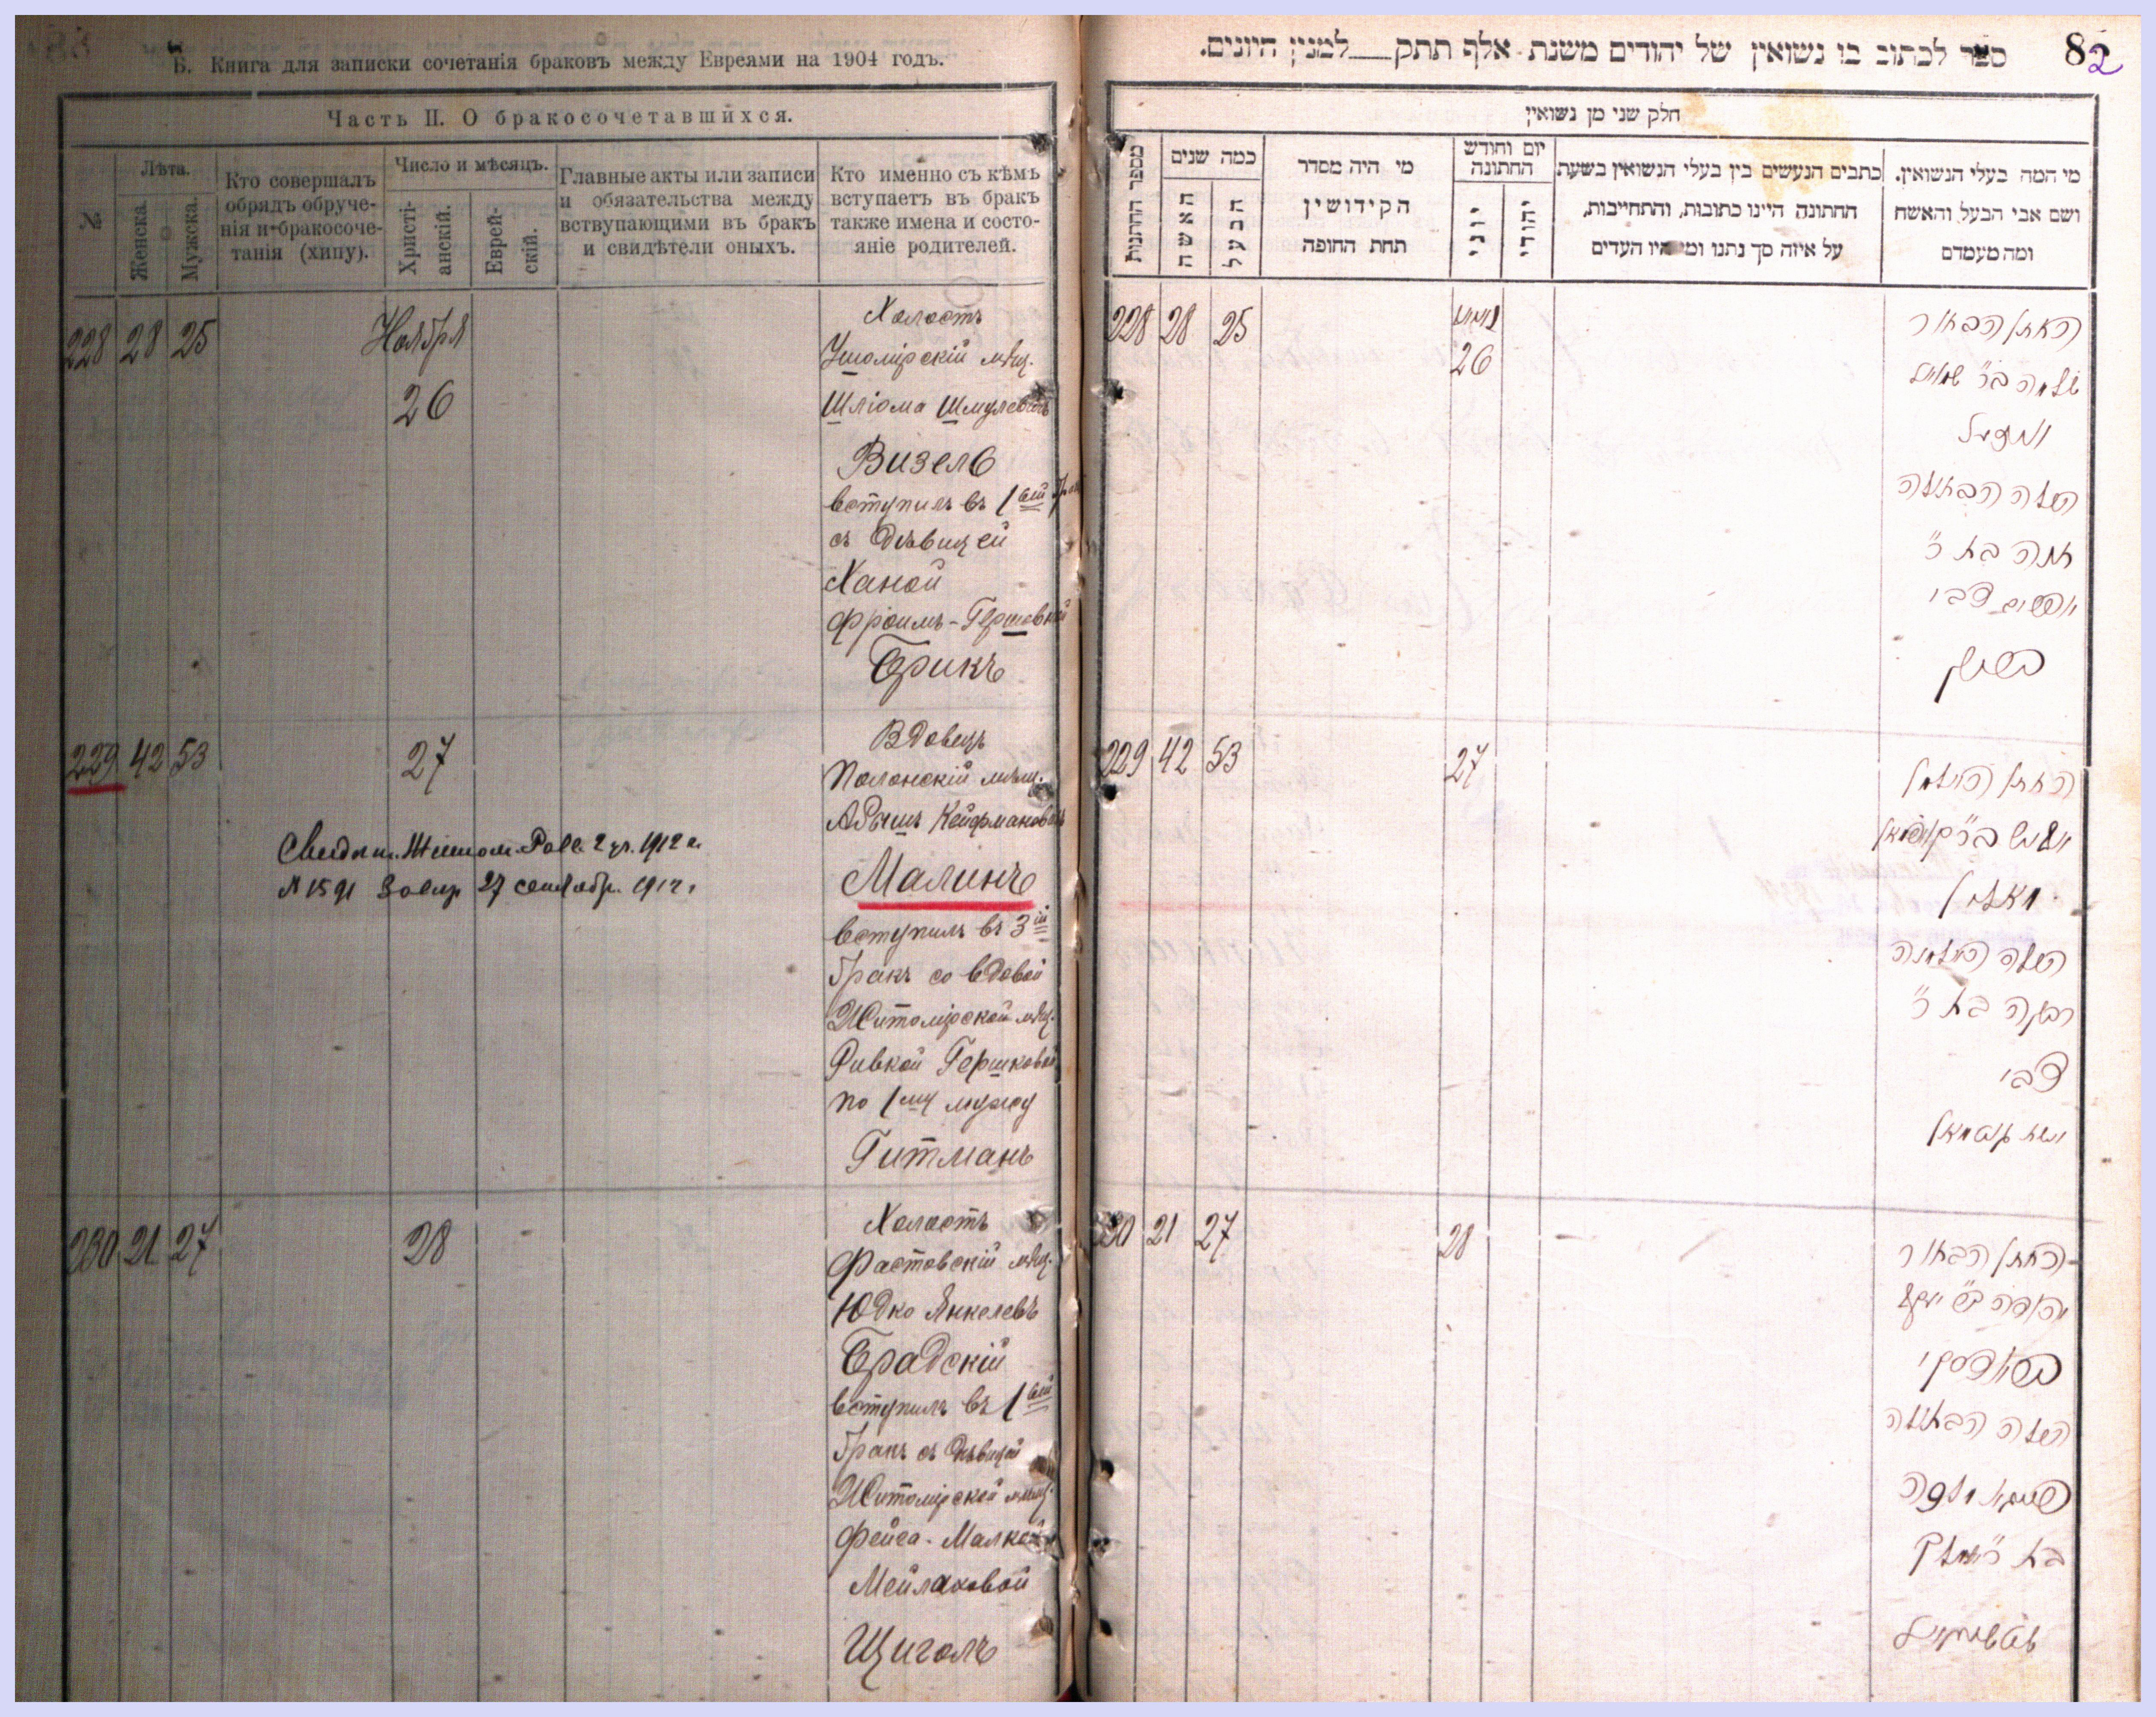 Б. Книга для записки сочетанія браковъ между Евреями на 1904 годъ.
Часть II. О бракосочетавшихся.
№
Лѣта.
Женска.
Мужска.
Кто совершалъ
обрядъ обруче-
нія и бракосоче-
танія (хипу).
Число и мѣсяцъ.
Христі-
анскій.
Еврей-
скій.
Главные акты или записи
и обязательства между
вствупающими въ бракъ
и свидѣтели оныхъ.
Кто именно съ кѣмъ
вступаетъ въ бракъ
также имена и состо-
яніе родителей.
228 28 25
Ноября
26
Холостъ
Ушомірскій мѣщ.
Шліома Шмулевичъ
Визель
вступилъ въ 1ый бракъ
съ дѣвицей
Ханой
Фроимъ-Гершовной
Брикъ
229 42 53
27
Вдовецъ
Полонскій мѣщ.
Абышъ Кейфмановичъ
Малинъ
вступилъ въ 3ій
бракъ со вдовой
Житомірской мѣщ.
Ривкой Гершковой
по 1му мужу
Гитманъ
2 уч. 1912 г.
№ 1591
27 сентябр. 1912 г.
230 21 27
28
Холостъ
Фастовскій мѣщ.
Юдко Янкелевъ
Бродскій
вступилъ въ 1ый
бракъ съ дѣвицей
Житомірской мѣщ.
Фейга-Малкой
Мейлаховой
Щиголъ
ספר לכתוב בו נשואין של יהודים משנת אלף תתק למנין היונים.
82
חלק שני מן נשואין
מספר החתנות
כמה שנים
האשה
הבעל
מי היה מסדר
הקידושין
תחת החופה
יום וחודש
החתונה
יוני
יהודי
כתבים הנעשים בין בעלי הנשואין בשעת
החתונה היינו כתובות, והתחייבות,
על איזה סך נתנו ומי היו העדים
מי המה בעלי הנשואין.
ושם אבי הבעל והאשה
ומה מעמדם
228 28 25
26
החתן הבחור
שלמה ב״ר שמואל
וויזעל
הכלה הבתולה
חנה בת ר׳
אפרים צבי
בריק
229 42 53
27
החתן האלמן
מאלין
הכלה האלמנה
רבקה בת ר׳
צבי
230 21 27
28
החתן הבחור
יהודה ב״ר יעקב
בראדסקי
הכלה הבתולה
פייגא מלכה